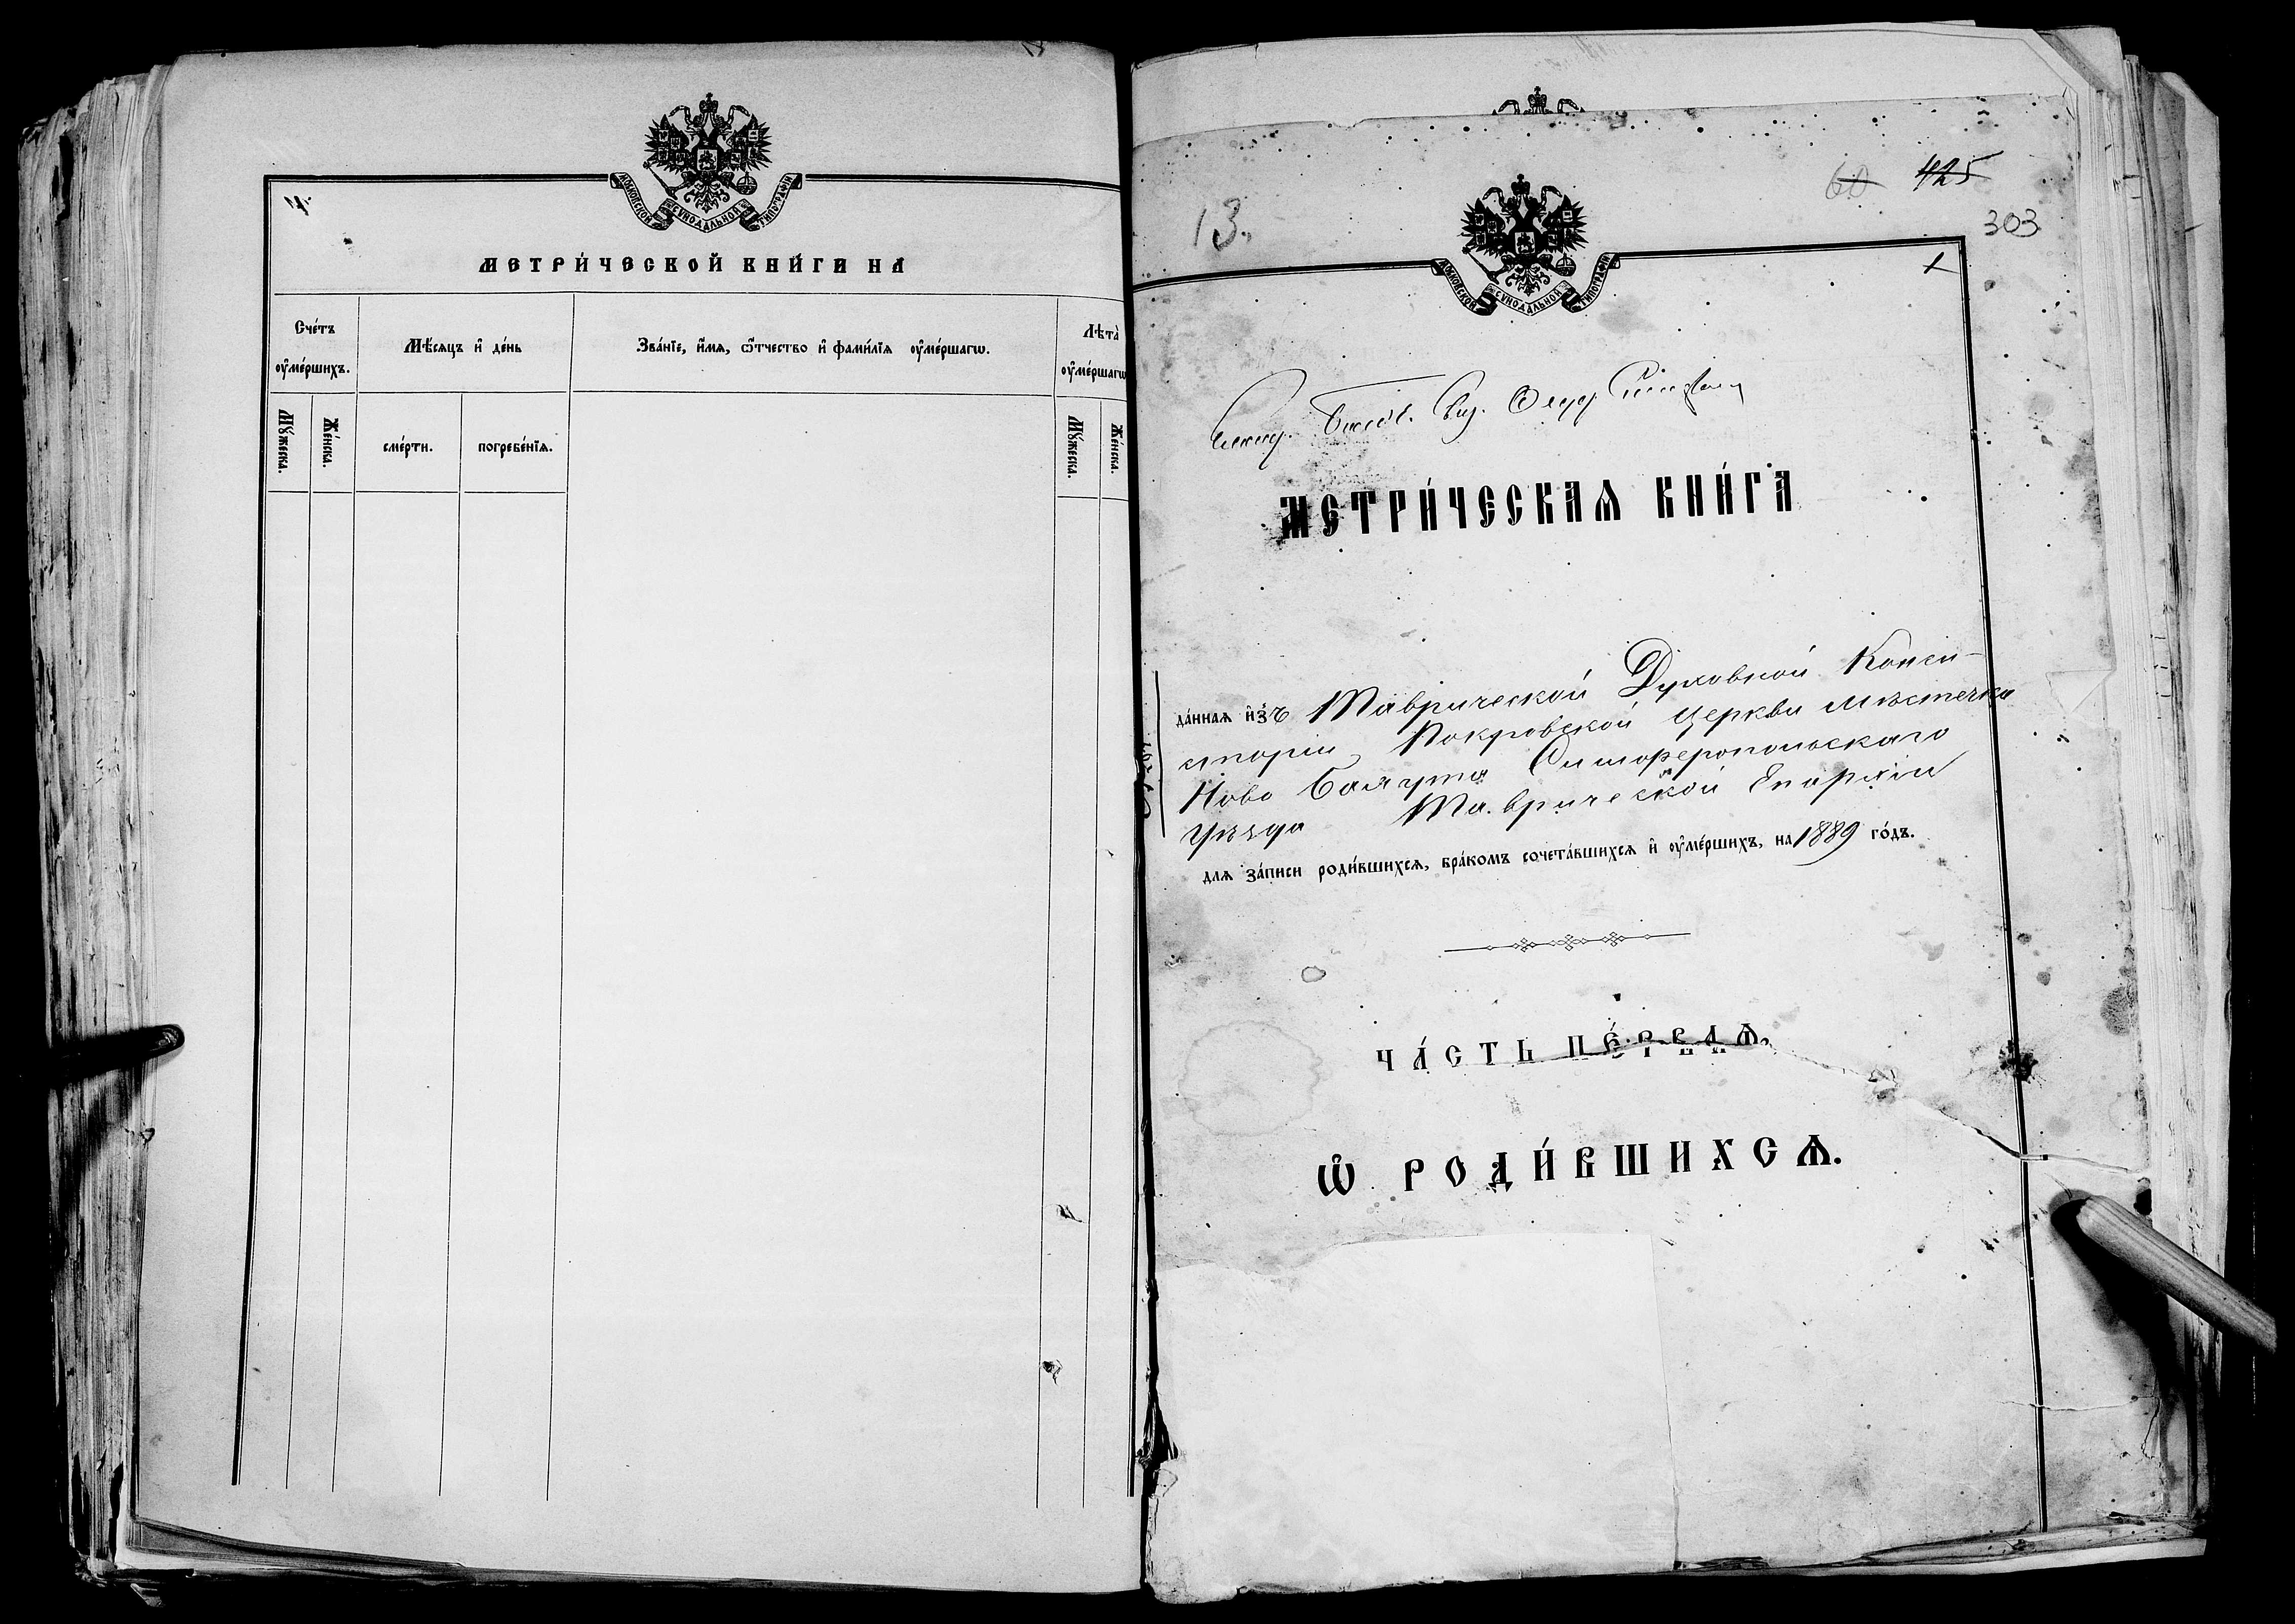 МОСКОВСКОЙ СѴНОДАЛЬНОЙ ТИПОГРАФІИ
МЕТРИ́ЧЕСКОЙ КНИ́ГИ НА
Сче́тъ оу҆ме́ршихъ.
Мѣ́сяцъ и҆ де́нь
Зва́нїе, и҆́мѧ, ѻ҆́тчество и҆ фами́лїѧ оу҆ме́ршагѡ.
Лѣта̀ оу҆ме́ршагѡ
Мꙋ́жеска.
Же́нска.
сме́рти.
погребе́нїѧ.
Мꙋ́жеска.
Же́нска.
60 425
13.
303
МОСКОВСКОЙ СѴНОДАЛЬНОЙ ТИПОГРАФІИ
1
МЕТРИ́ЧЕСКАѦ КНИ́ГА
да́ннаѧ и҆зъ Таврической Духовной Конси-
сторіи Покровской церкви мѣстечка
Ново Симферопольскаго
Уѣзда Таврической Епархіи
длѧ за́писи роди́вшихсѧ, бра́комъ сочета́вшихсѧ и҆ оу҆ме́ршихъ, на 1889 го́дъ.
ЧА́СТЬ ПЕ́РВАѦ.
Ѡ҆ РОДИ́ВШИХСѦ.